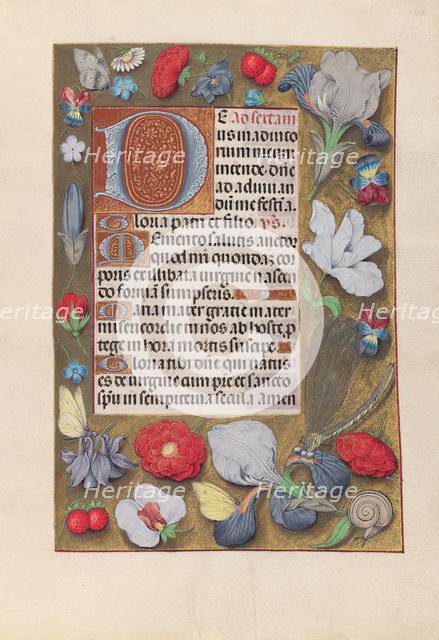 E ad sextam
us in adiuto
rium meum
intende. dñe
ad adiuuan
dum me festi‾a.
Gloria patri et filio. ps.
Memento salutis auctor
quod nri quondaz cor
poris ex illibata virgine nascẽ
do formã sumpseris.
Maria mater gratie mater
misericordie tu nos ab hoste p‾
tege in hora mortis suscipe.
Gloria tibi dñe qui natus
es de virgine cum pre et sancto
spũ in sempiterna secula amen
Heritage
Heritage
Heritage
Heritage
Heritage
Heritage
Heritage
Heritage